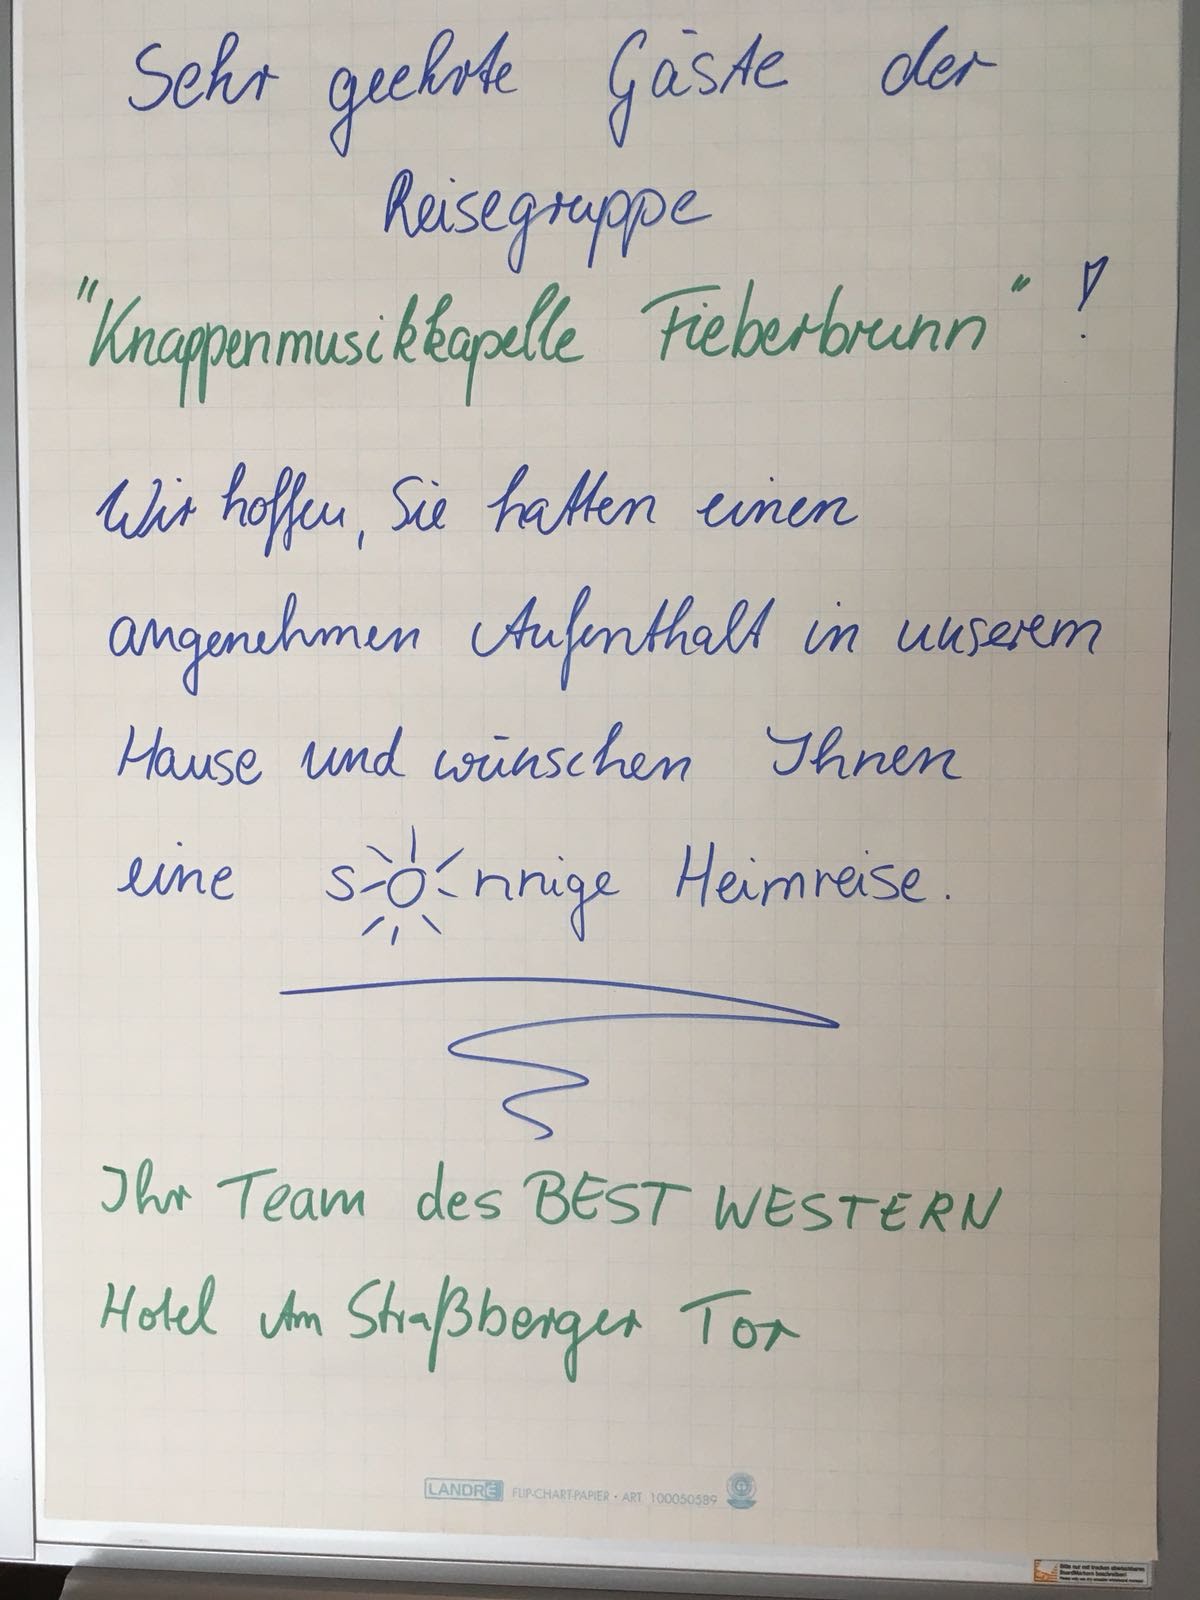 Sehr geehrte Gäste der
Reisegruppe
"Knappenmusikkapelle Fieberbrunn" !
Wir hoffen, Sie hatten einen
angenehmen Aufenthalt in unserem
Hause und wünschen Ihnen
eine sonnige Heimreise.
Ihr Team des BEST WESTERN
Hotel Am Straßberger Tor
LANDRÉ FLIP-CHART-PAPIER • ART. 100050589